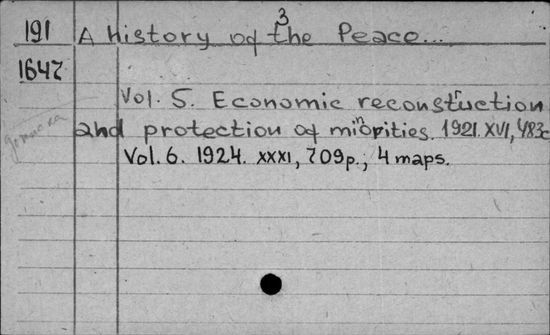 3
191 A history of the Peace...
1647
Vol. 5. Economic reconstruction
and protection of minorities. 1921. XVI, 483c
Vol. 6. 1924. XXXI, 709p., 4 maps.